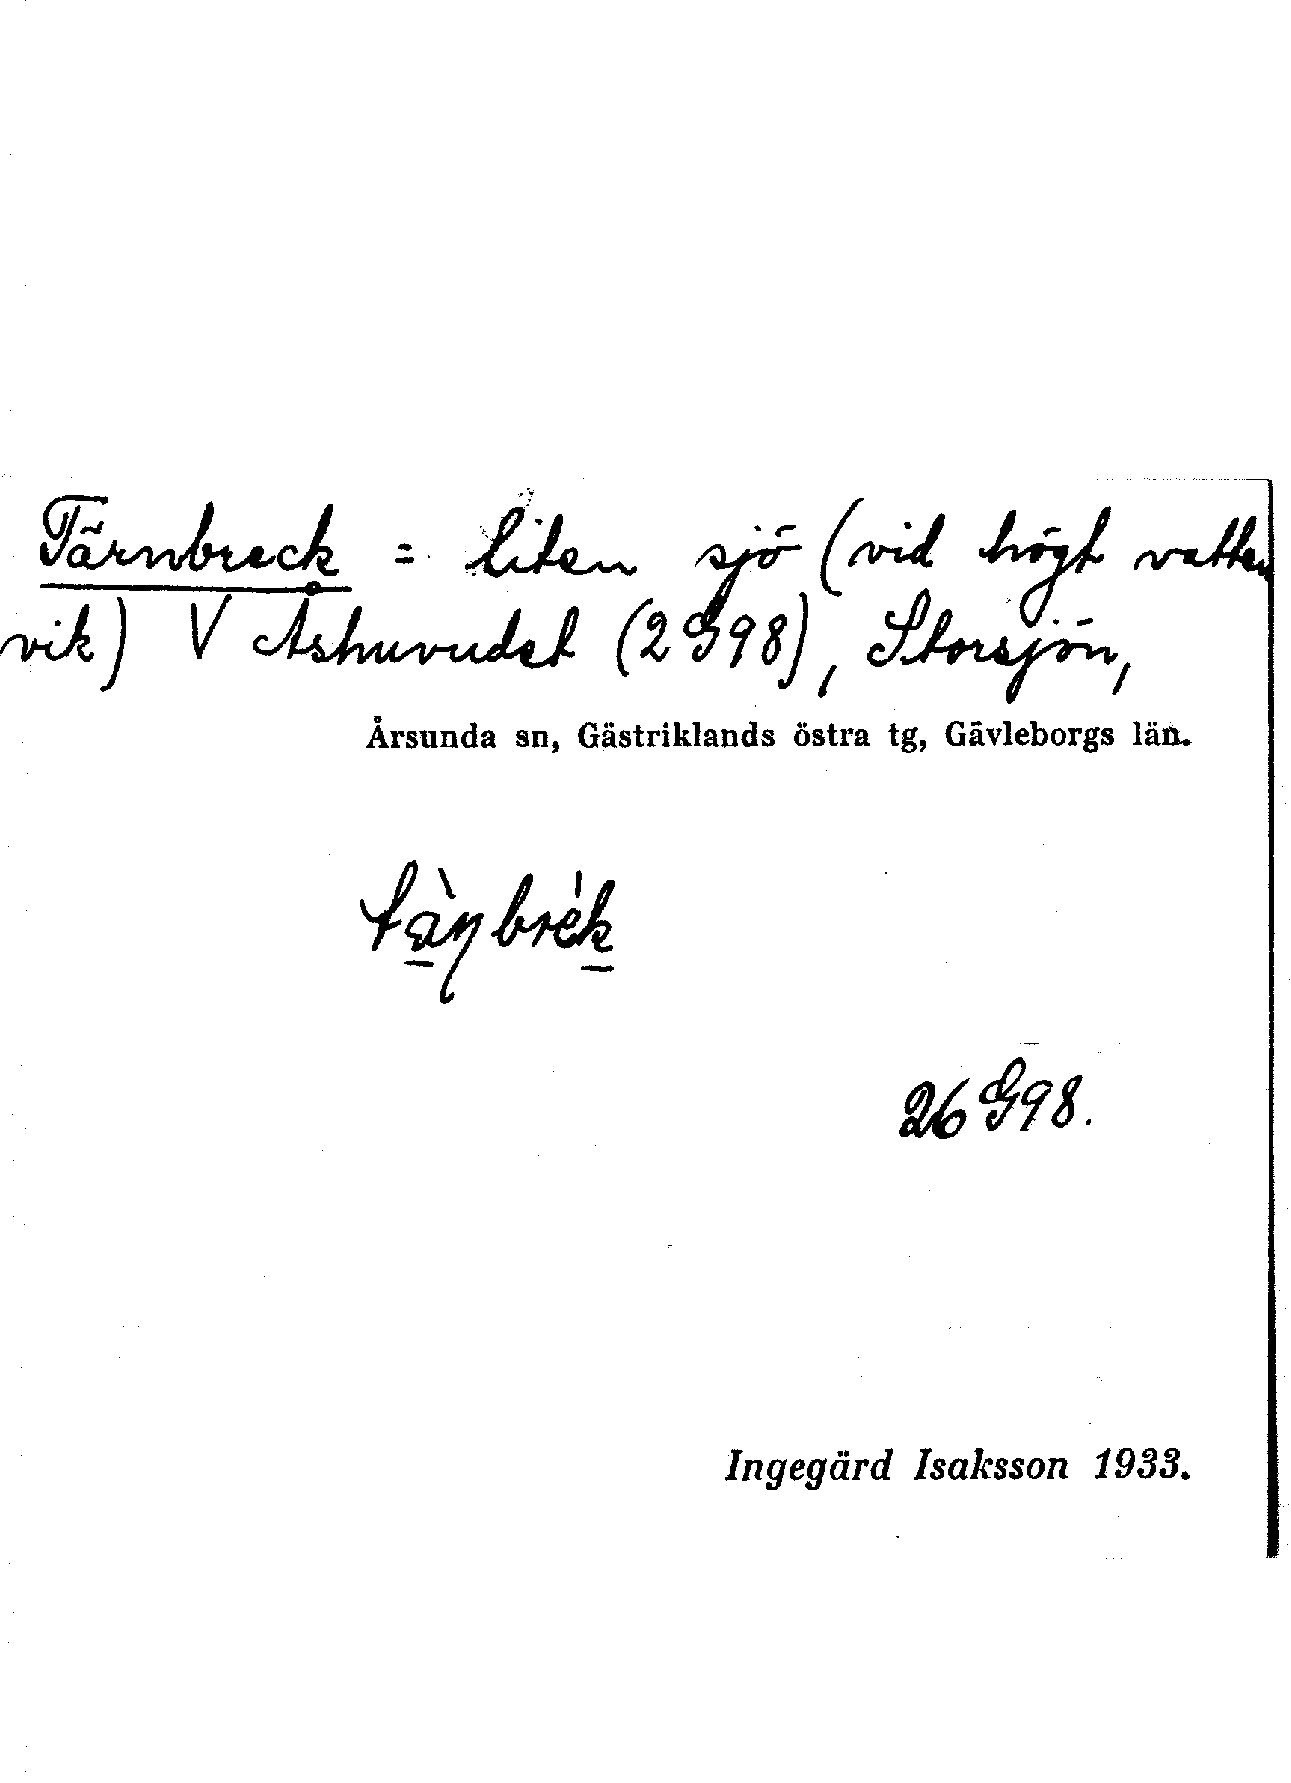 Tärnbreck = Liten sjö (vid högt vatten
vik) V Åshuvudet (2 G 98), Storsjön,
Årsunda sn, Gästriklands östra tg, Gävleborgs län.
26 G 98.
Ingegärd Isaksson 1933.